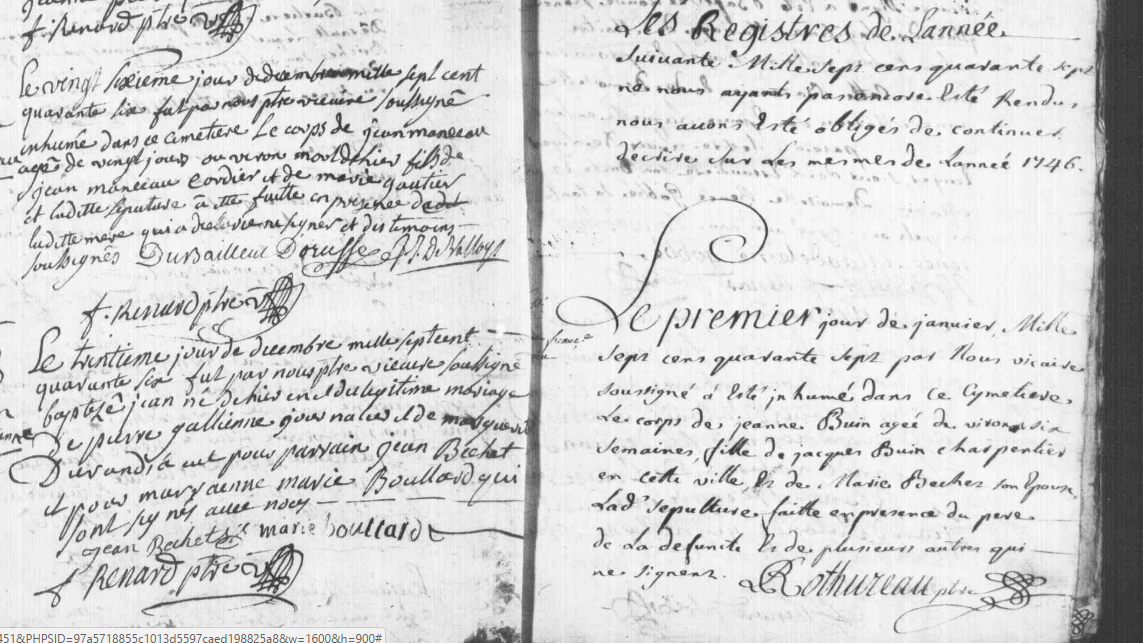 f. Renard ptre v
Le vingt sixieme jour de decembre mille sept cent
quarante six fut par nous ptre vicaire soussigné
inhumé dans ce cimetiere Le corps de jean manceau
agé de vingt jours ou viron mort d'hier fils de
jean manceau cordier et de marie gautier
et laditte sepulture a ette faitte en presence de
laditte mere qui a declaré ne signer et des temoins
soussignés Duvailleul Dorusse
f. Renard ptre v
Le trentieme jour de decembre mille sept cent
quarante six fut par nous ptre vicaire soussigné
baptisé jean né d'hier en du legitime mariage
de pierre gallienne journalier et de marguerit
Durand, a eut pour parrain jean Bechet
et pour marraine marie Boullard qui
sont signés avec nous
jean Bechet marie boullard
f RENARD ptre v
Les Registres de Lannée
Suivante Mille sept cens quarante sept
ne nous ayants pas encore Esté Rendus
nous avons Esté obligés de continuer
decrire sur Les mesmes de Lannée 1746.
Le premier jour de janvier Mille
sept cens quarante sept par Nous vicaire
soussigné a Esté jnhumé dans ce Cymetiere
Le corps de jeanne Buin agée de viron six
semaines, fille de jacques Buin charpentier
en cette ville, Et de Marie Bechet son Epouse,
Lad. sepulture faitte en presence du pere
de La defunte Et de plusieurs autres qui
ne signent. Rothureau ptre
451&PHPSID=97a5718855c1013d5597caed198825a8&w=1600&h=900#